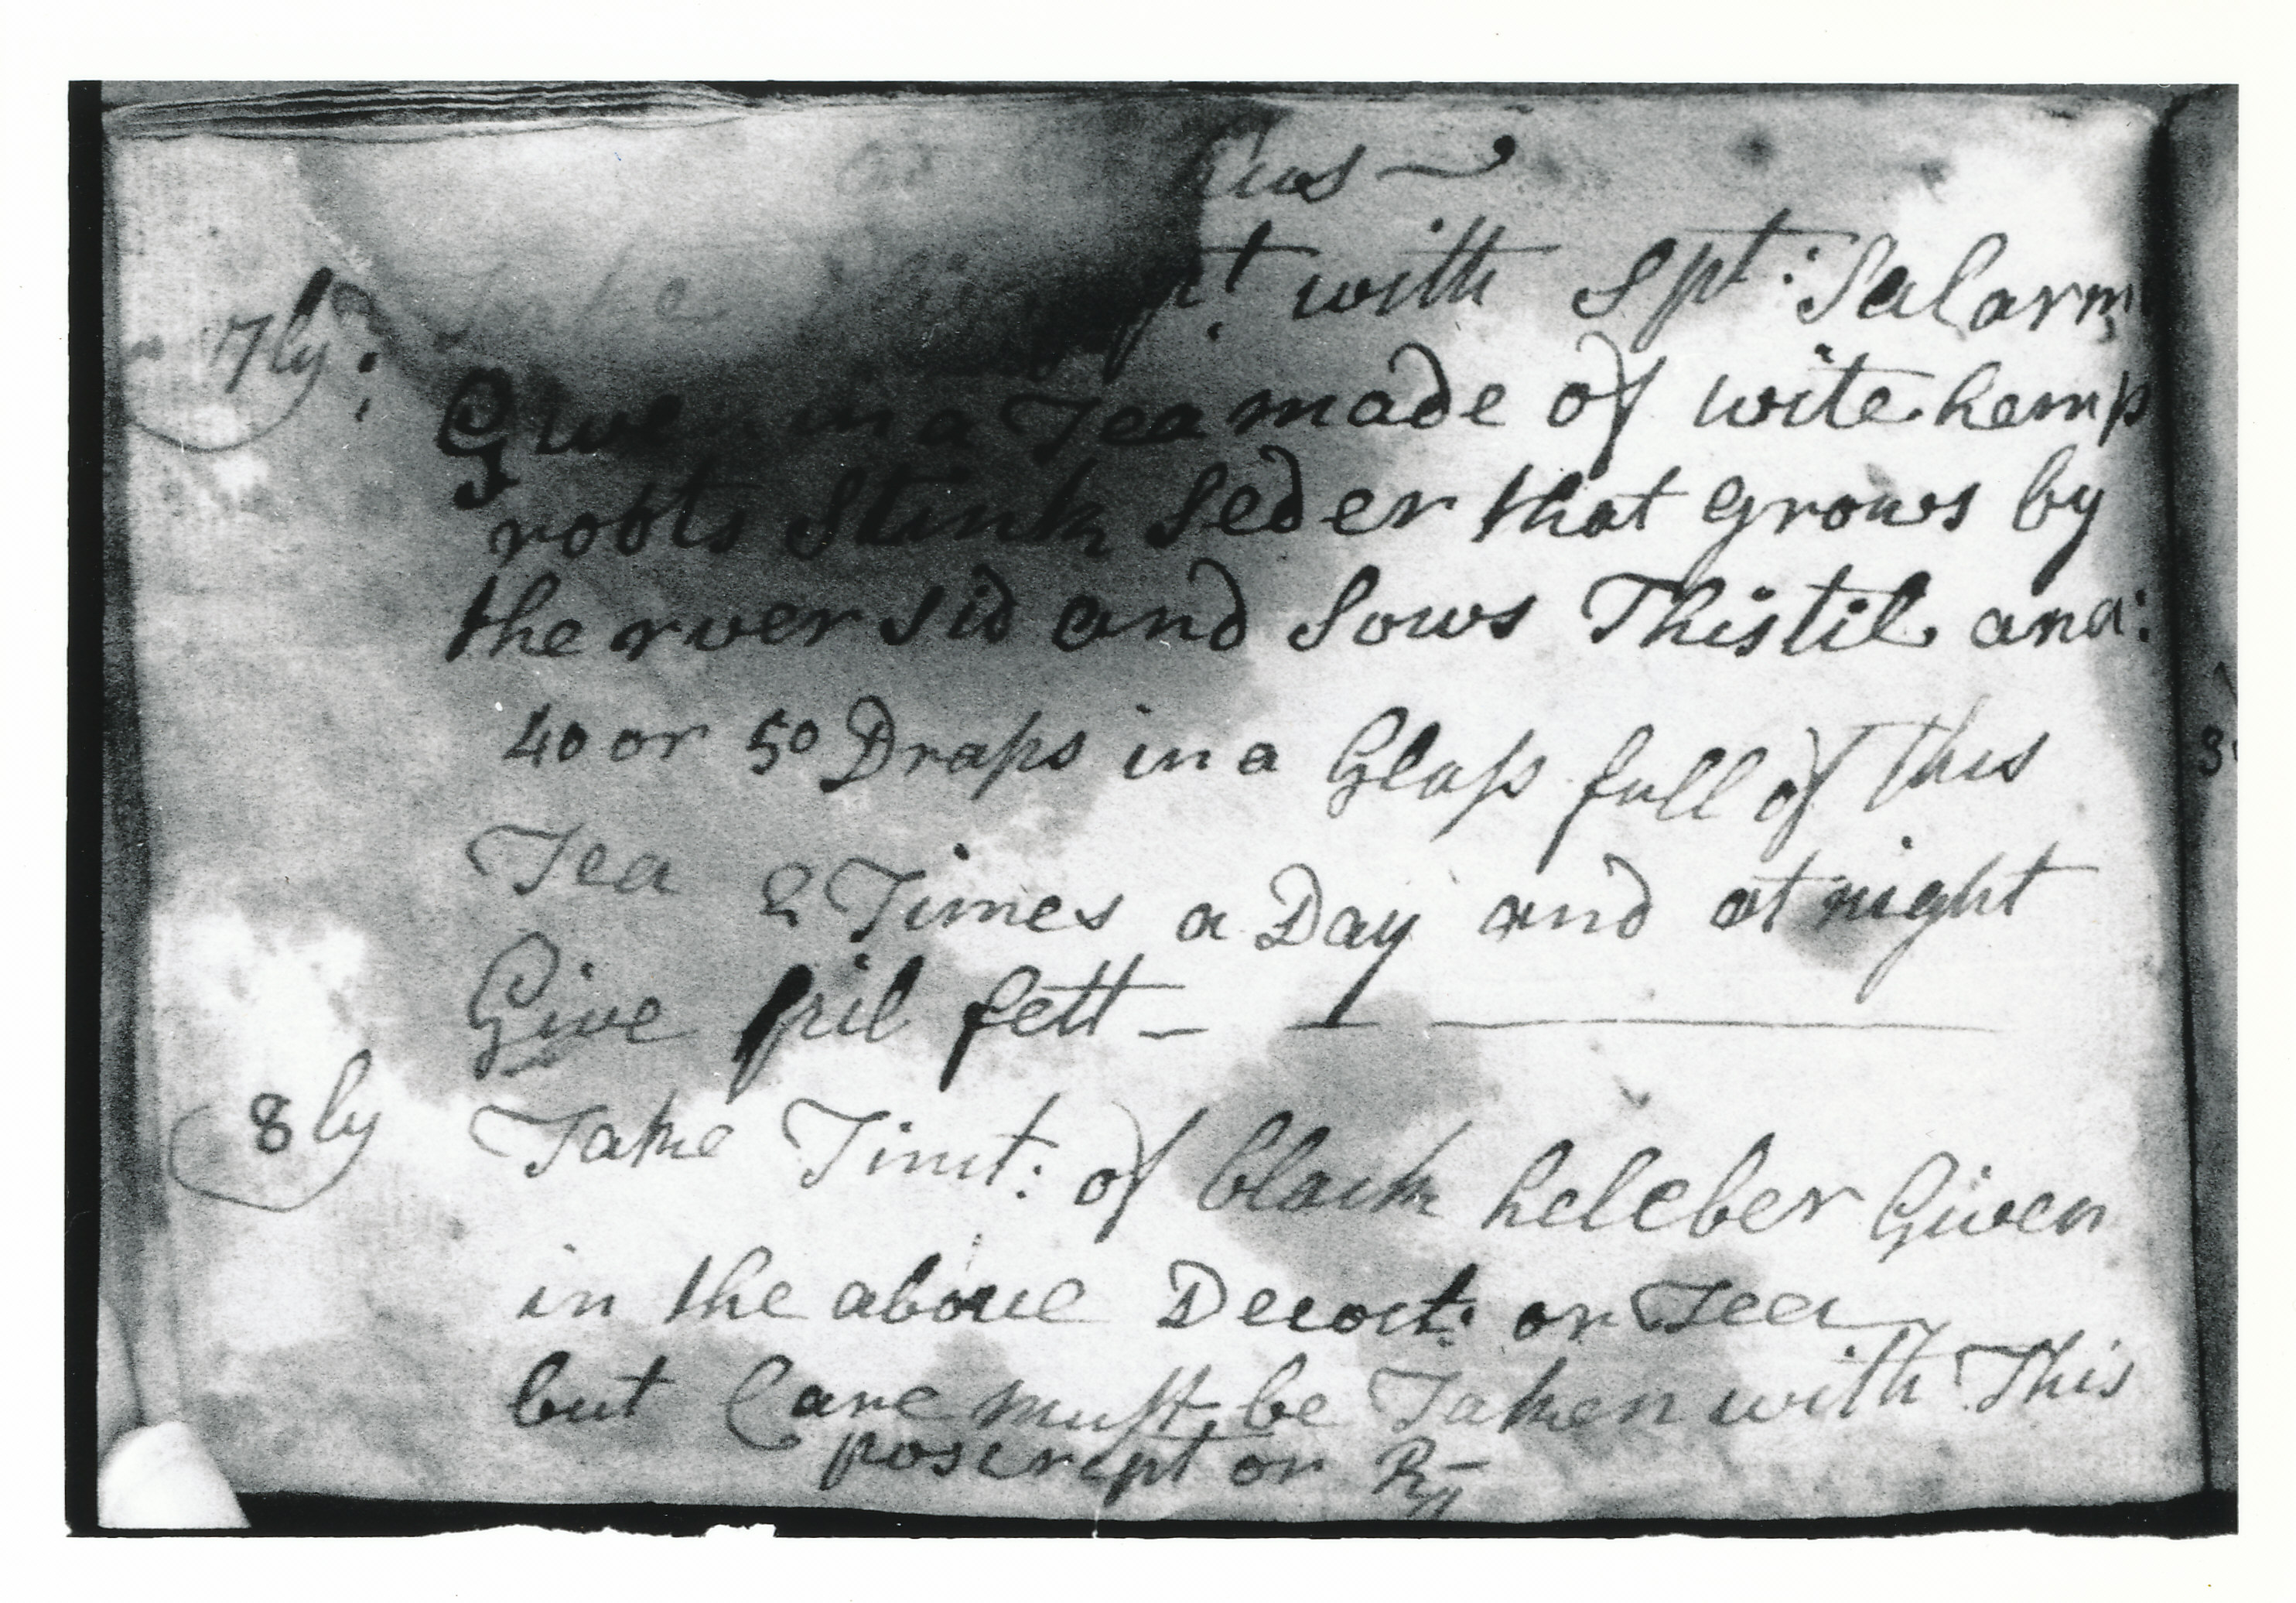 7ly: Take pt. with Spt: Salarm
Given in a Tea made of wite hemp
roots Stink Seder that grows by
the rver sid and Sows Thistil and:
40 or 50 Draps in a Glass full of this
Tea 2 Times a Day and at night
Give pil fett —
8ly Take Tinct: of black heleber Given
in the above Decoct: or Tea
but Care must be Taken with This
poscript or R